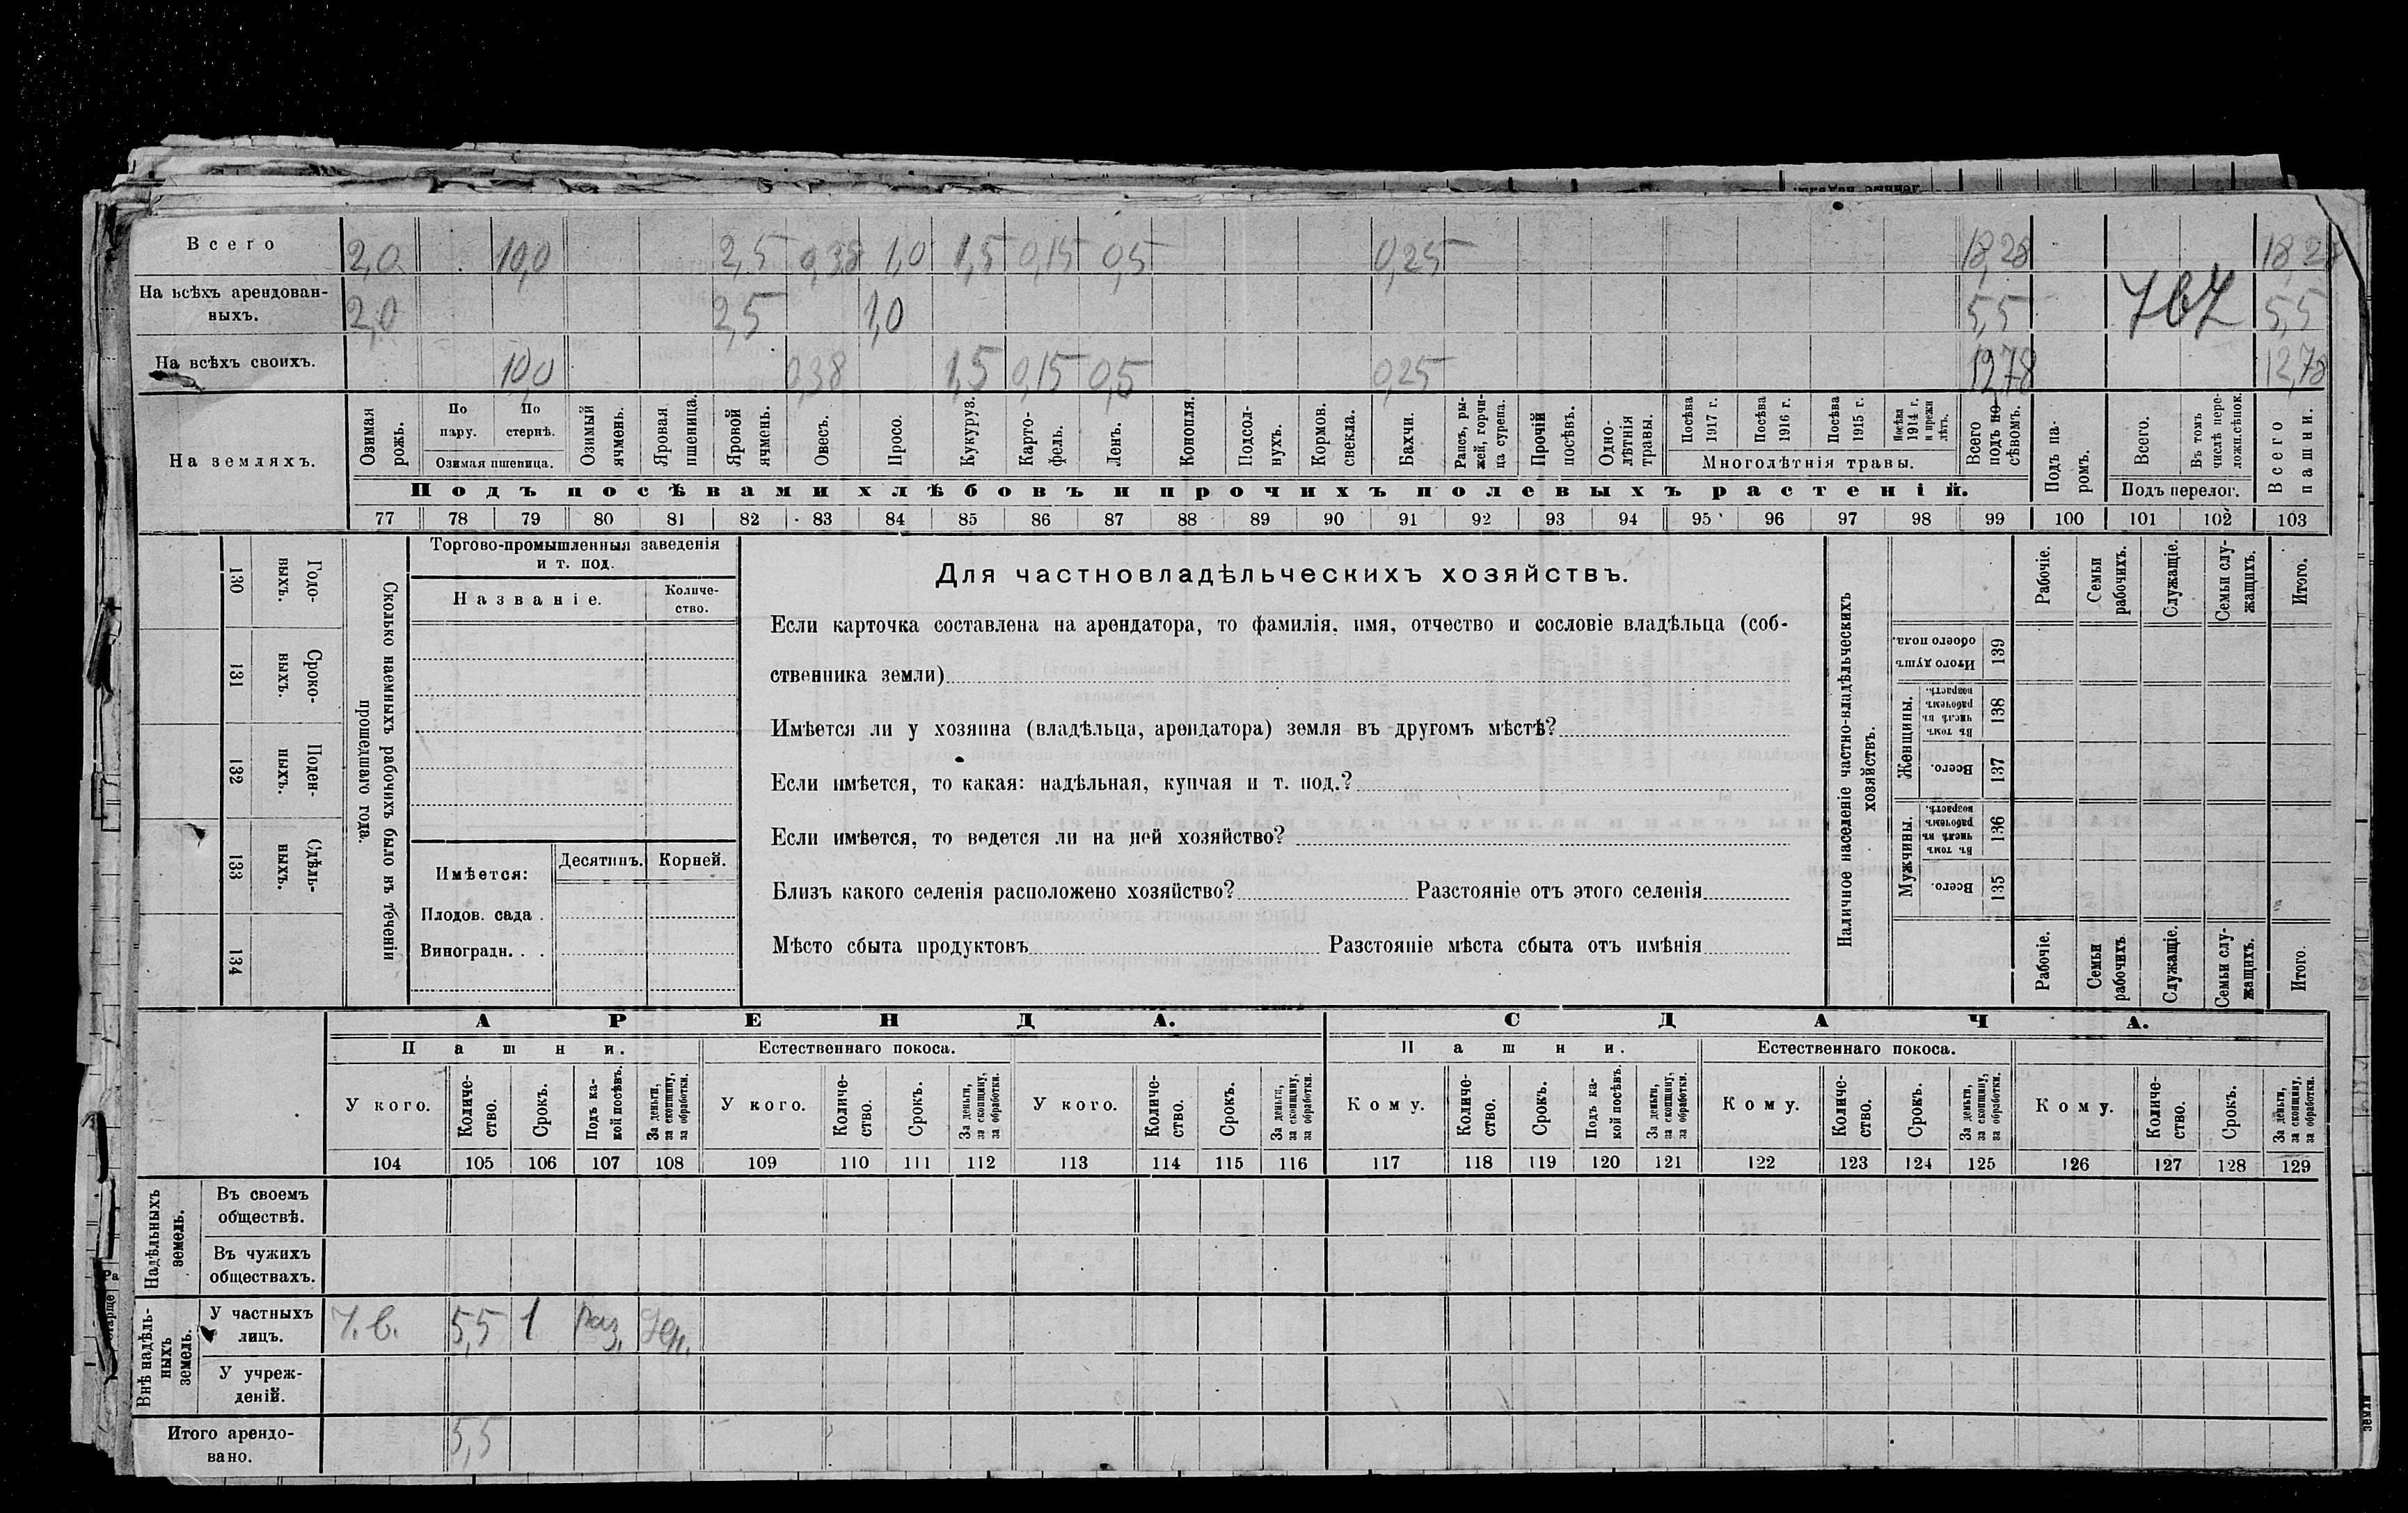 Всего 2,0 10,0 2,5 0,38 1,0 1,5 0,15 0,5 0,25 18,28 18,28
На всѣхъ арендован-
ныхъ. 2,0 2,5 1,0 5,5 5,5
На всѣхъ своихъ. 10,0 0,38 1,5 0,15 0,5 0,25 12,78 12,78
На земляхъ.
Озимая рожь.
По пару.
По стернѣ.
Озимая пшеница.
Озимый ячмень.
Яровая пшеница.
Яровой ячмень.
Овесъ.
Просо.
Кукуруз.
Карто-
фель.
Ленъ.
Конопля.
Подсол-
нухъ.
Кормов. свекла.
Бахчи.
Рапсъ, ры-
жей, горчи-
ца сурепа.
Прочій посѣвъ.
Одно-
лѣтнія травы.
Посѣва 1917 г.
Посѣва 1916 г.
Посѣва 1915 г.
Посѣва 1914 г. и прежн лѣтъ.
Многолѣтнія травы.
Всего подъ по-
сѣвомъ.
Подъ па-
ромъ.
Всего.
Въ томъ числѣ пере-
ложн.сѣнок.
Подъ перелог.
Всего пашни.
Подъ посѣвами хлѣбовъ и прочихъ полевыхъ растеній.
77 78 79 80 81 82 83 84 85 86 87 88 89 90 91 92 93 94 95 96 97 98 99 100 101 102 103
Годо-
выхъ.
130
Сроко-
выхъ.
131
Поден-
ныхъ.
132
Сдѣль-
ныхъ.
133
134
Сколько наемныхъ рабочихъ было въ теченіи
прошедшаго года.
Торгово-промышленныя заведенія
и т. под.
Названіе.
Количе-
ство.
Имѣется: Десятинъ. Корней.
Плодов. сада .
Виноградн. . .
Для частновладѣльческихъ хозяйствъ.
Если карточка составлена на арендатора, то фамилія, имя, отчество и сословіе владѣльца (соб-
ственника земли)
Имѣется ли у хозяина (владѣльца, арендатора) земля въ другомъ мѣстѣ?
Если имѣется, то какая: надѣльная, купчая и т. под.?
Если имѣется, то ведется ли на ней хозяйство?
Близъ какого селенія расположено хозяйство? Разстояніе отъ этого селенія
Мѣсто сбыта продуктовъ Разстояніе мѣста сбыта отъ имѣнія
Наличное населеніе частно-владѣльческихъ
хозяйствъ.
Рабочіе.
Семьи рабочихъ.
Служащіе.
Семьи слу-
жащихъ.
Итого.
Итого душъ обоего пола.
139
Женщины.
Въ томъ числѣ въ рабочемъ возрастѣ.
138
Всего.
137
Мужчины.
Въ томъ числѣ въ рабочемъ возрастѣ.
136
Всего.
135
Рабочіе.
Семьи рабочихъ
Служащіе.
Семьи слу-
жащихъ.
Итого.
АРЕНДА. СДАЧА.
Пашни. Естественнаго покоса. Пашни. Естественнаго покоса.
У кого.
Количе-
ство.
Срокъ.
Подъ ка-
кой посѣвъ.
За деньги, за скопщину, за обработки.
У кого.
Количе-
ство.
Срокъ.
За деньги, за скопщину, за обработки.
У кого.
Количе-
ство.
Срокъ.
За деньги, за скопщину, за обработки.
Кому.
Количе-
ство.
Срокъ.
Подъ ка-
кой посѣвъ.
За деньги, за скопщину, за обработки.
Кому.
Количе-
ство.
Срокъ.
За деньги, за скопщину, за обработки.
Кому.
Количе-
ство.
Срокъ.
За деньги, за скопщину, за обработки.
104 105 106 107 108 109 110 111 112 113 114 115 116 117 118 119 120 121 122 123 124 125 126 127 128 129
Надѣльныхъ
земель.
Въ своемъ
обществѣ.
Въ чужихъ
обществахъ.
Внѣ надѣль-
ныхъ
земель.
У частныхъ
лицъ. Ч.в. 5,5 1 раз. Ден.
У учреж-
деній.
Итого арендо-
вано. 5,5
земли